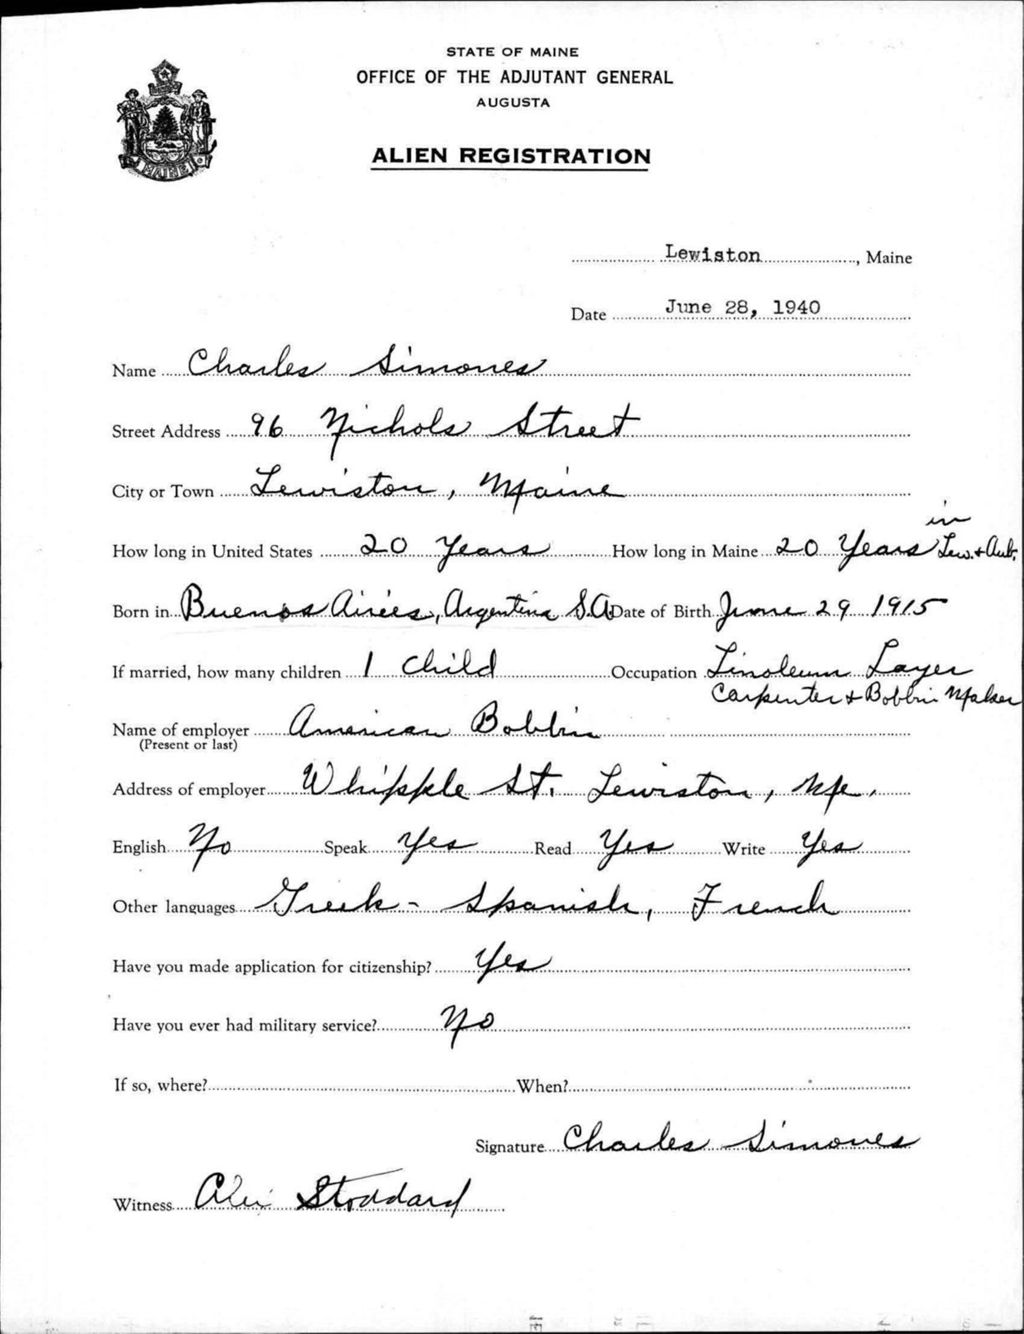 STATE OF MAINE
OFFICE OF THE ADJUTANT GENERAL
AUGUSTA
ALIEN REGISTRATION
MAINE
Lewiston, Maine
Date June 28, 1940
Name Charles Simones
Street Address 96 Nichols Street
City or Town Lewiston, Maine
in
How long in United States 20 Years How long in Maine 20 Years Lew. + Aub.
Born in Buenos Aires, Argentina S.A Date of Birth June 29 1915
If married, how many children 1 Child Occupation Linoleum Layer
Carpenter + Bobbin Maker
Name of employer American Bobbin
(Present or last)
Address of employer Whipple St. Lewiston, Me.
English No Speak Yes Read Yes Write Yes
Other languages Greek - Spanish, French
Have you made application for citizenship? Yes
Have you ever had military service? No
If so, where? When?
Signature Charles Simones
Witness Stoddard